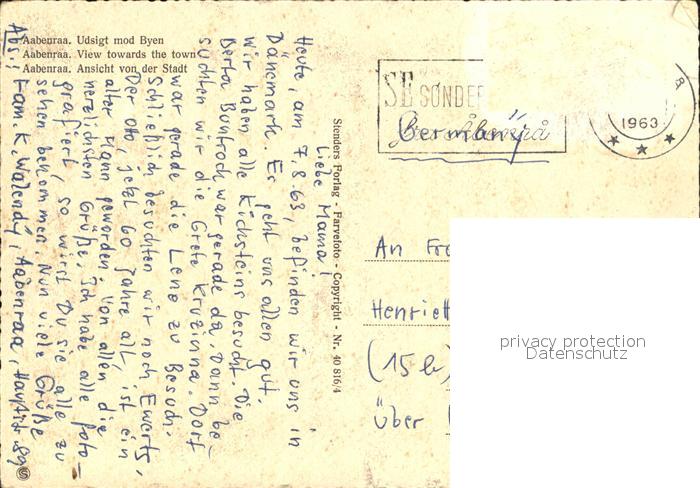 Aabenraa. Udsigt mod Byen
Aabenraa. View towards the town
Aabenraa. Ansicht von der Stadt
Liebe Mama!
Heute, am 7.8.63, befinden wir uns in
Dänemark. Es geht uns allen gut.
Wir haben alle Kichsteins besucht. Die
Berta Buntrock war gerade da. Dann be-
suchten wir die Grete Kruzinna. Dort
war gerade die Lene zu Besuch.
Schließlich besuchten wir noch Ewerts,
Der Otto, jetzt 60 Jahre alt, ist ein
alter Mann geworden. Von allen die
herzlichsten Grüße. Ich habe alle foto-
grafiert, so wirst Du sie alle zu
sehen bekommen. Nun viele Grüße
Abs.: Fam. K. Walendy, Aabenraa, 89
Stenders Forlag - Farvefoto - Copyright - Nr. 40 816/4
SE SØNDER
Germany
1963
An
Henriett
(15b)
über
privacy protection
Datenschutz